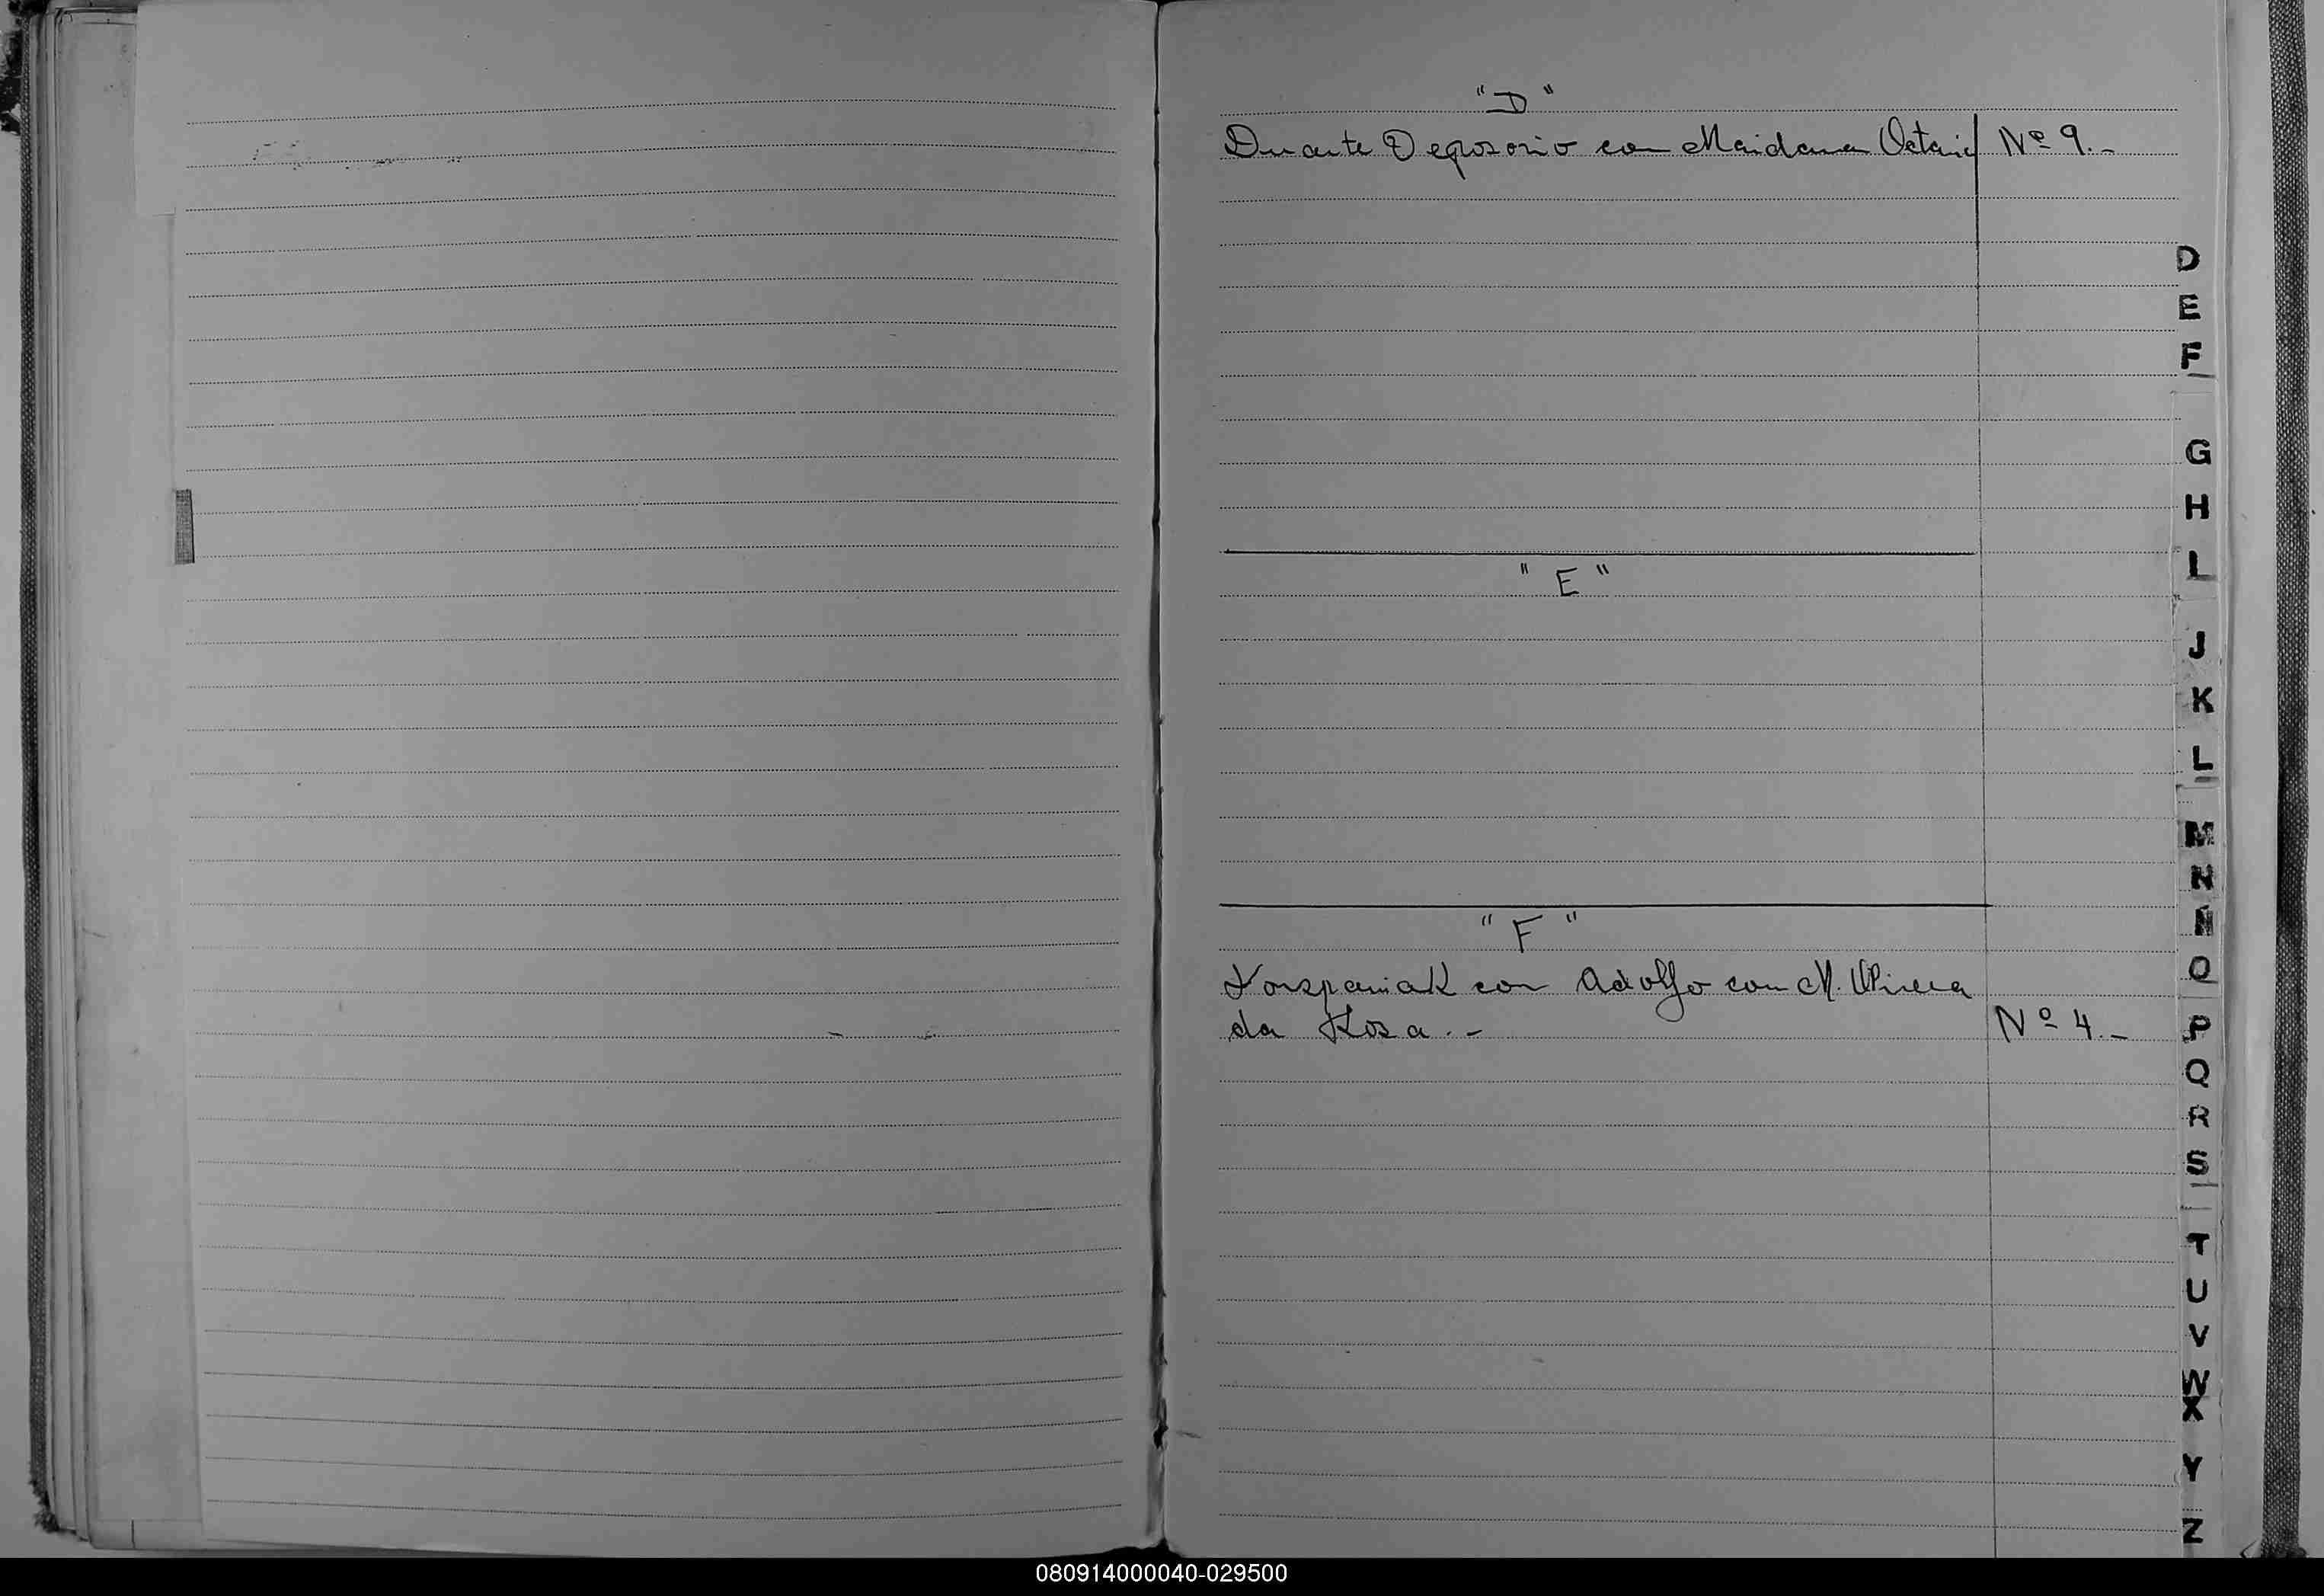 "D"
Duarte Deposorio con Maidana Nº 9.-
D
E
F
G
H
I
"E"
J
K
L
M
N
Ñ
"F"
O
con Adolfo con M.
da Rosa.- Nº 4.-
P
Q
R
S
T
U
V
W
X
Y
Z
080914000040-029500